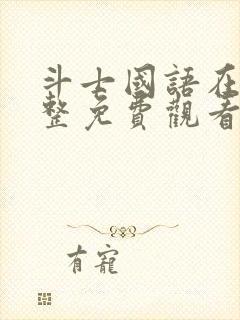 斗士國語在
整免費觀看
有寵